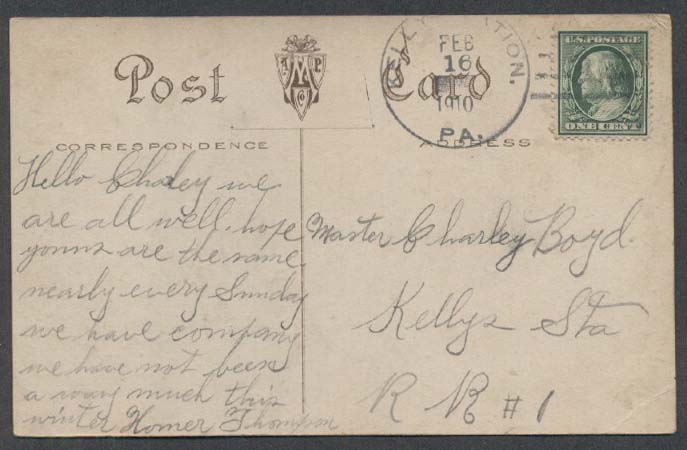 Post Card
A M P
Co
KELLY STATION.
FEB
16
1910
PA.
U.S. POSTAGE
ONE 1 CENT
CORRESPONDENCE
ADDRESS
Hello Chaley we
are all well. hope
younns are the same
nearly every Sunday
we have company
we have not been
a way much this
winter Homer Thompson
Master Charley Boyd.
Kellys Sta
R R # 1